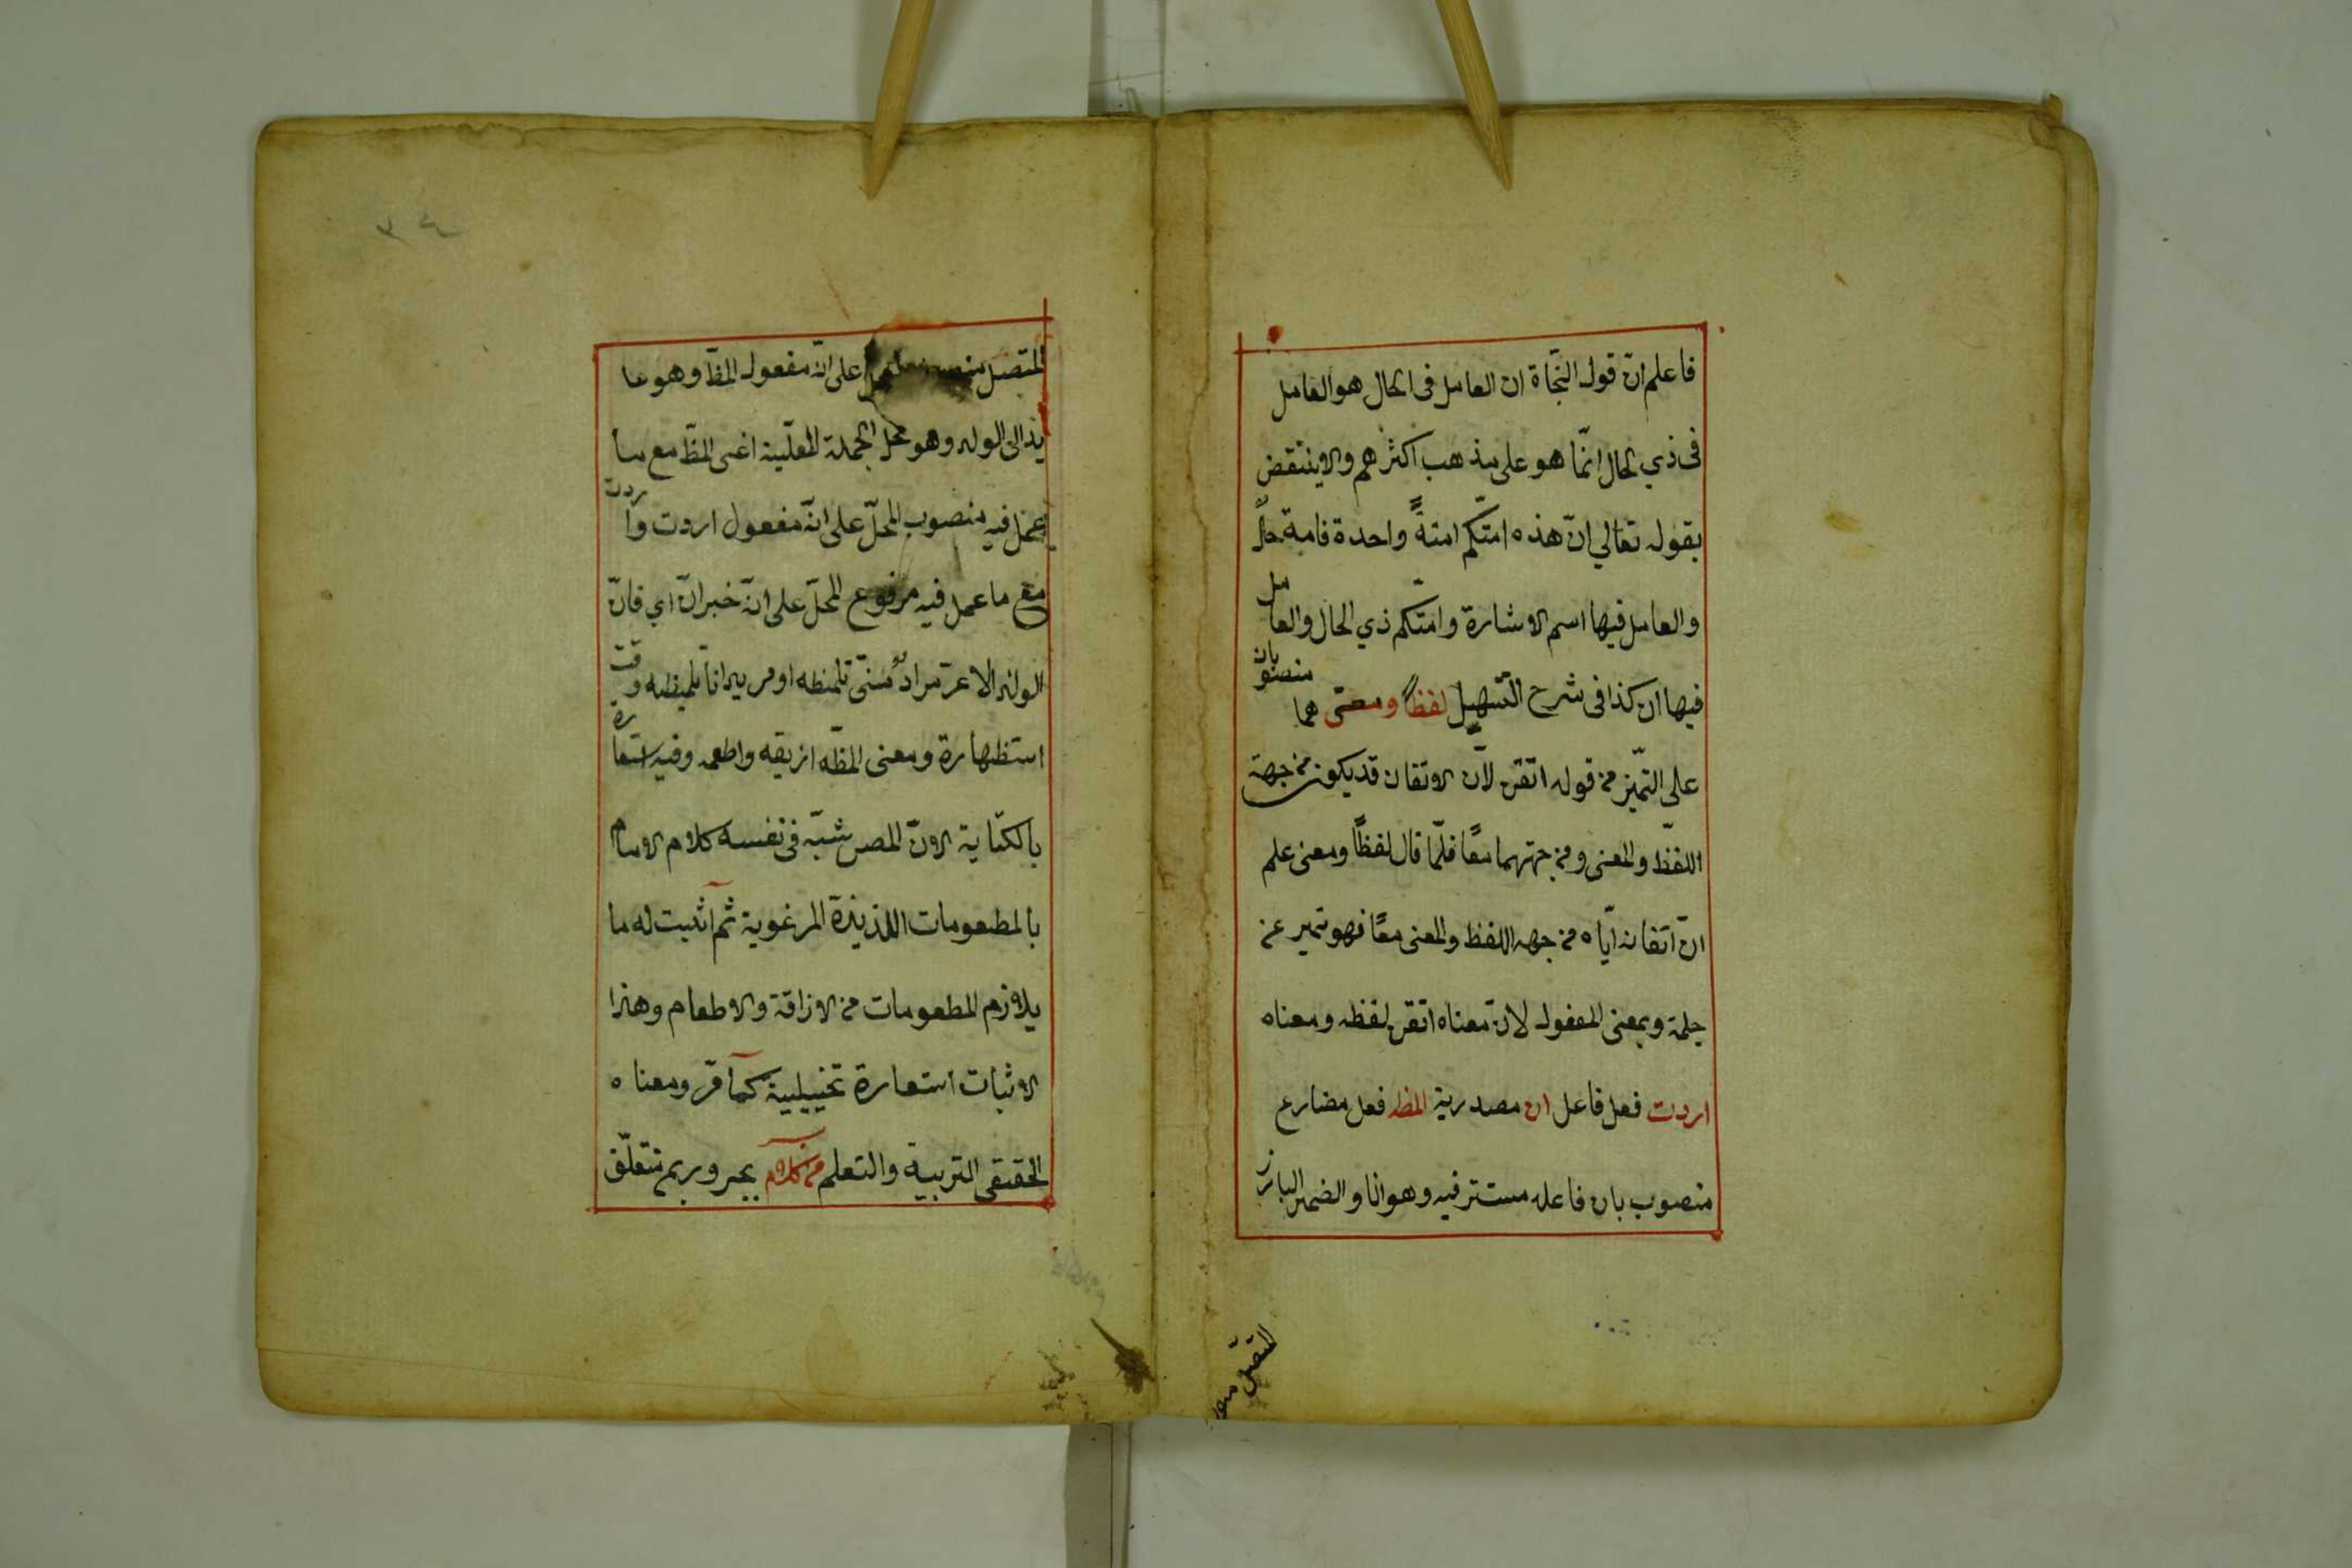 فاعلم انّ قول النّحاة ان العامل فى الحال هو العامل
فى ذي الحال انّما هو على مذهب اكثرهم والا ينتقض
بقوله تعالي انّ هذه امّتكم امّةً واحدة فامة حالٌ
والعامل فيها اسم الاشارة وامّتكم ذي الحال والعامل
فيها ان كذا فى شرح التّسهيل لفظاً ومعنى هما منصوبان
على التّميز من قوله اتقن لانّ الاتقان قد يكون من جهة
اللفظ والمعنى ومن جهتهما معًا فلمّا قال لفظًا ومعنى علم
انّ اتقانه ايّاه من جهه اللفظ والمعنى معًا فهو تميز عن
جملة وبمعنى المفعول لانّ معناه اتقن لفظه ومعناه
اردت فعل فاعل ان مصدرية المظه فعل مضارع
منصوب بان فاعله مستتر فيه وهو انا والضمير البارز
المتّصل
المتّصل على انّه مفعول المظ وهو عا
يد الى الولد وهو محل الجملة الفعلّية اعنى المظّ مع ما
عمل فيه منصوب المحلّ على انّه مفعول اردت واردت
مع ما عمل فيه مرفوع المحلّ على انّه خبر انّ اي فانّ
الولد الاعز مراد منّى تلمظه او مريد انا تلميظه وقت
استظهاره ومعنى المظّه اذيقه واطعمه وفيه استعارة
بالكنّاية لانّ المص شبّه فى نفسه كلام الامام
بالمطعومات اللذيذة المرغوبة ثم اثبت له ما
يلازم المطعومات من الاذاقة والاطعام وهذا
الاثبات استعارة تخييلية كما قر ومعناه
الحقيقى التربية والتعلم من كلام مجرور بمن متعلّق